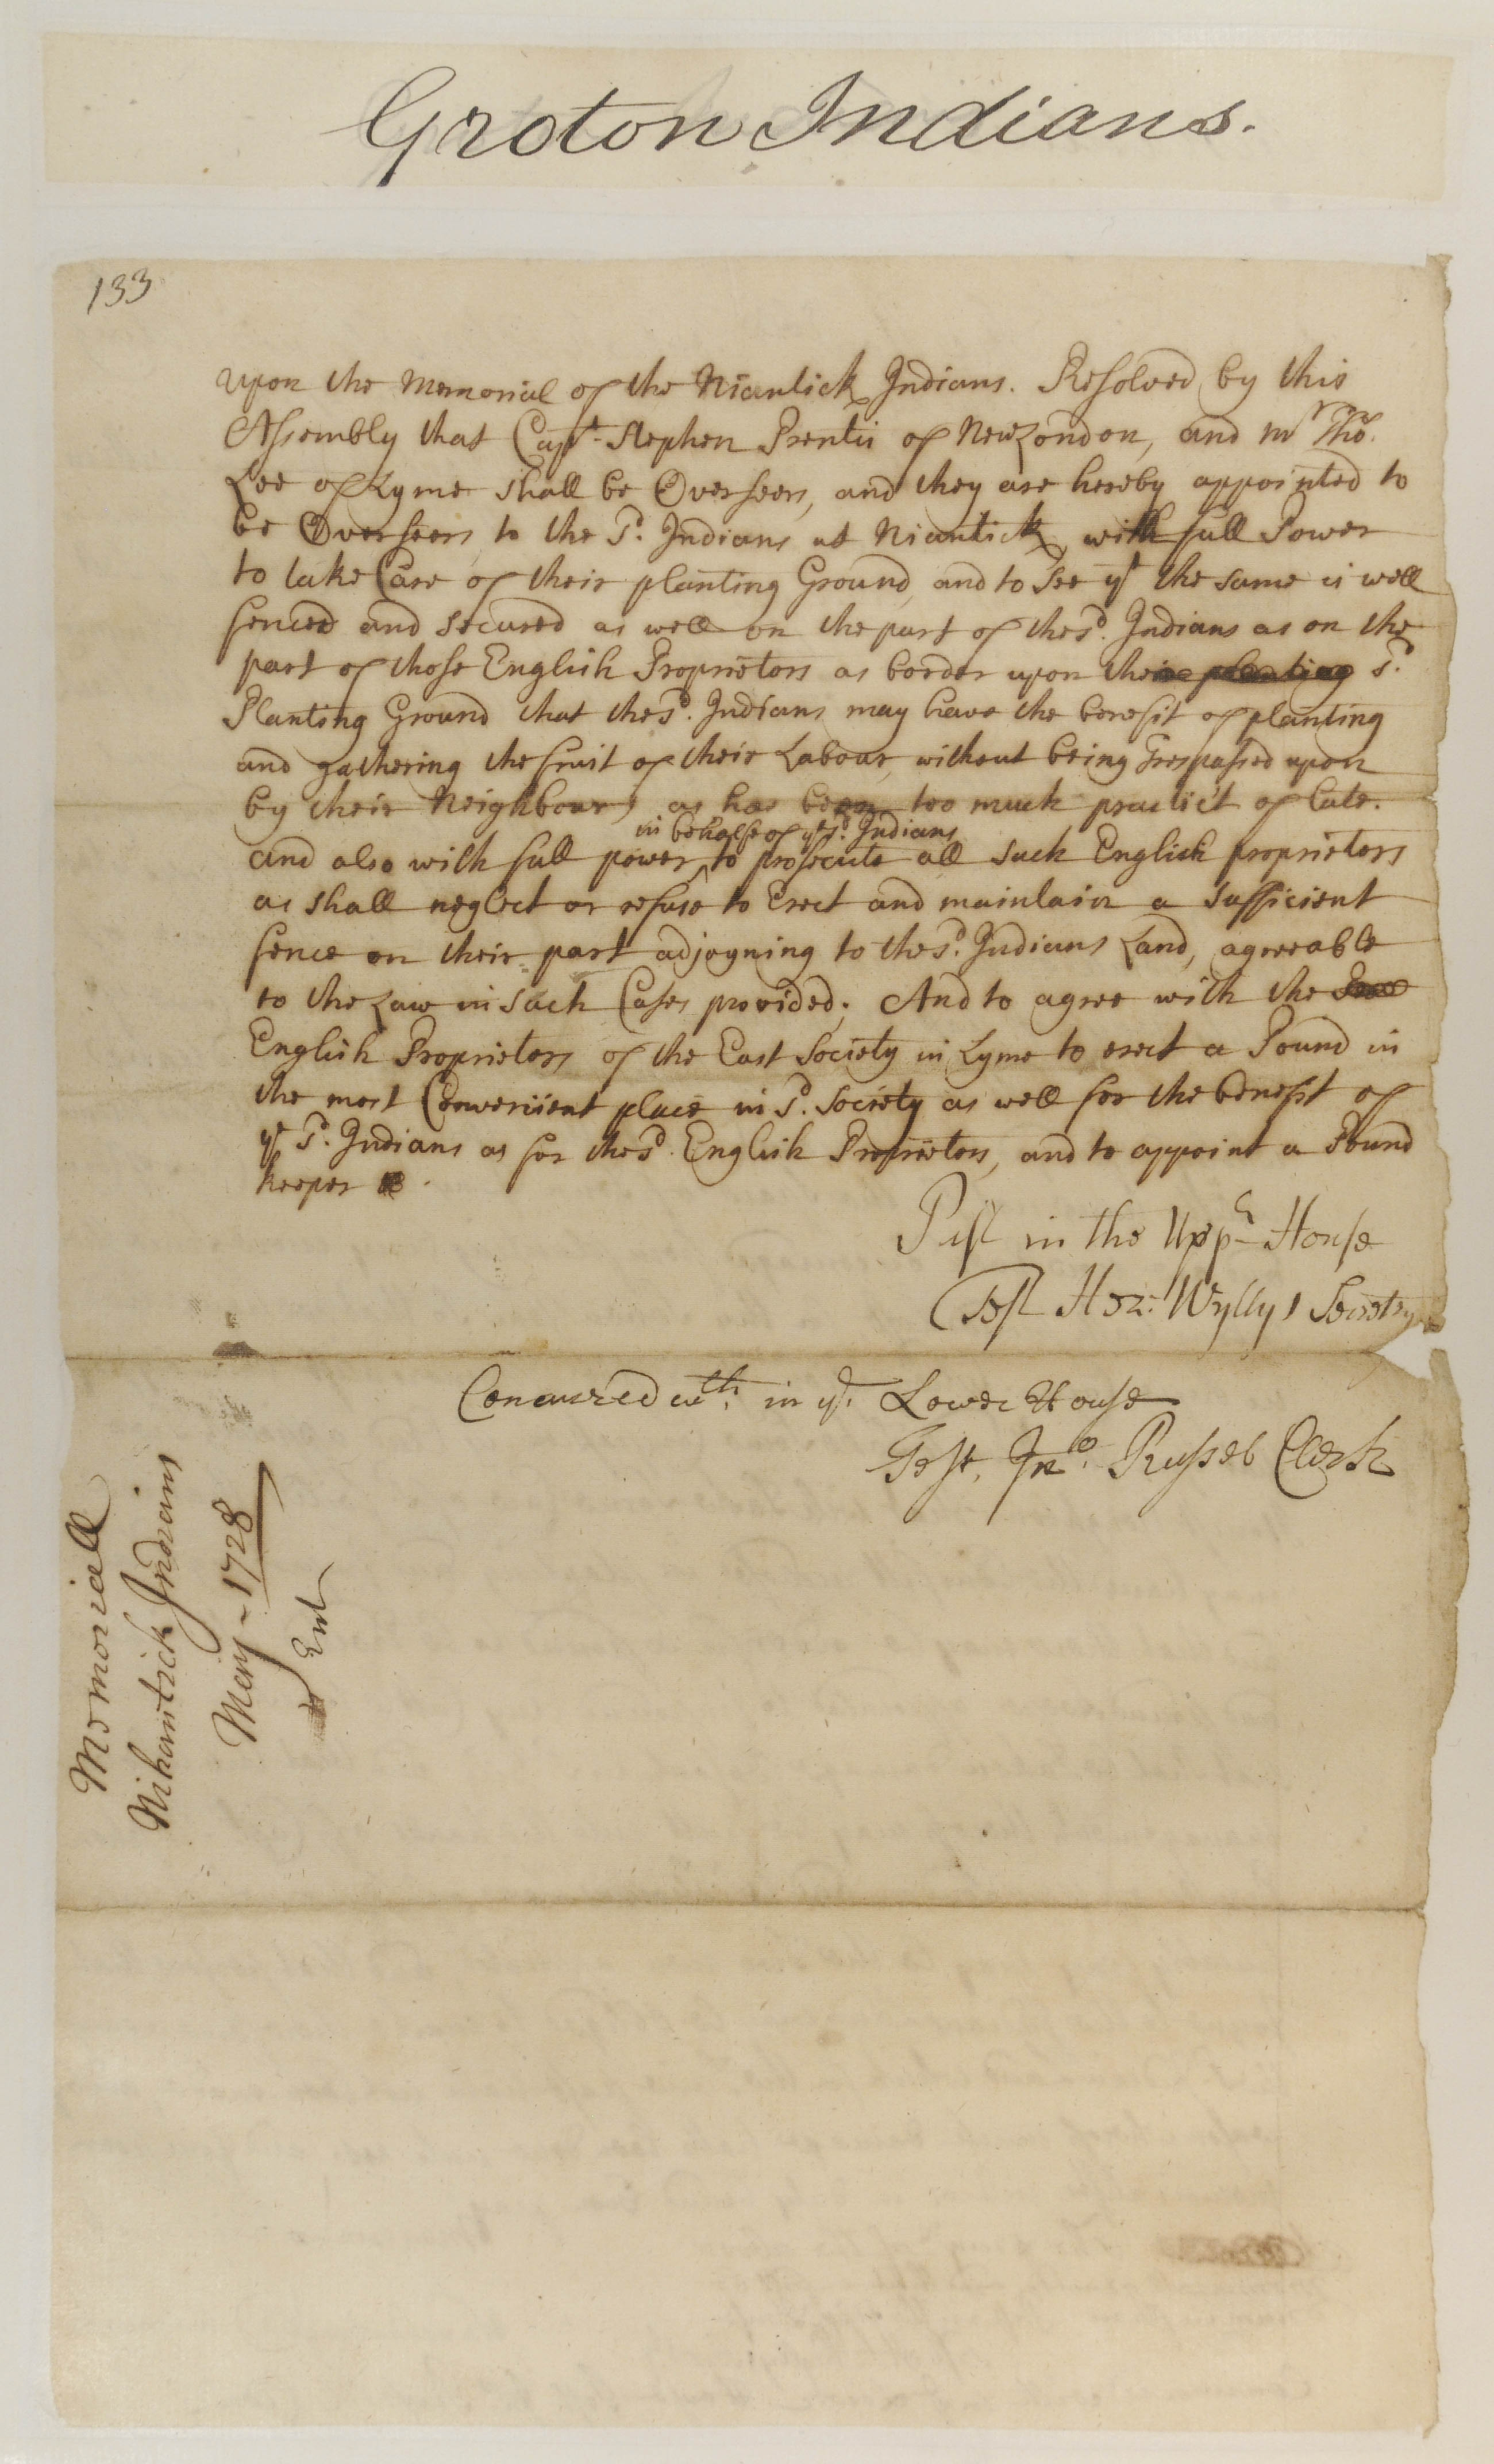 Groton Indians.
133
Upon the Memorial of the Niantick Indians. Resolved by this
Assembly that Capt. Stephen Prentis of New London, and mr Tho.
Lee of Lyme shall be Overseers, and they are hereby appointed to
be Overseers to the sd. Indians at Niantick, with full Power
to take Care of their planting Ground, and to See yt the same is well
fenced and secured as well on the part of the sd. Indians as on the
part of those English Proprietors as border upon their planting sd.
Planting Ground that the sd. Indians may have the benefit of planting
and gathering the fruit of their Labour, without being Trespassed upon
by their Neighbours, as has been too much practic't of late.
in behalfe of ye sd. Indians
and also with full power ^ to prosecute all such English proprietors
as shall neglect or refuse to Erect and maintain a sufficient
fence on their part adjoyning to the sd. Indians Land, agreeable
to the Law in such Cases provided; And to agree with the
English Proprietors of the East Society in Lyme to erect a Pound in
the most Convenient place in sd. Society as well for the benefit of
ye sd. Indians as for the sd. English Proprietors, and to appoint a Pound
keeper
Past in the Uppr House
Test Hez: Wyllys Secretry
Concurred wth. in ye. Lower House
Test, Jno. Russel Clerk
Memoriall
Nihantick Indians
May - 1728
Ent